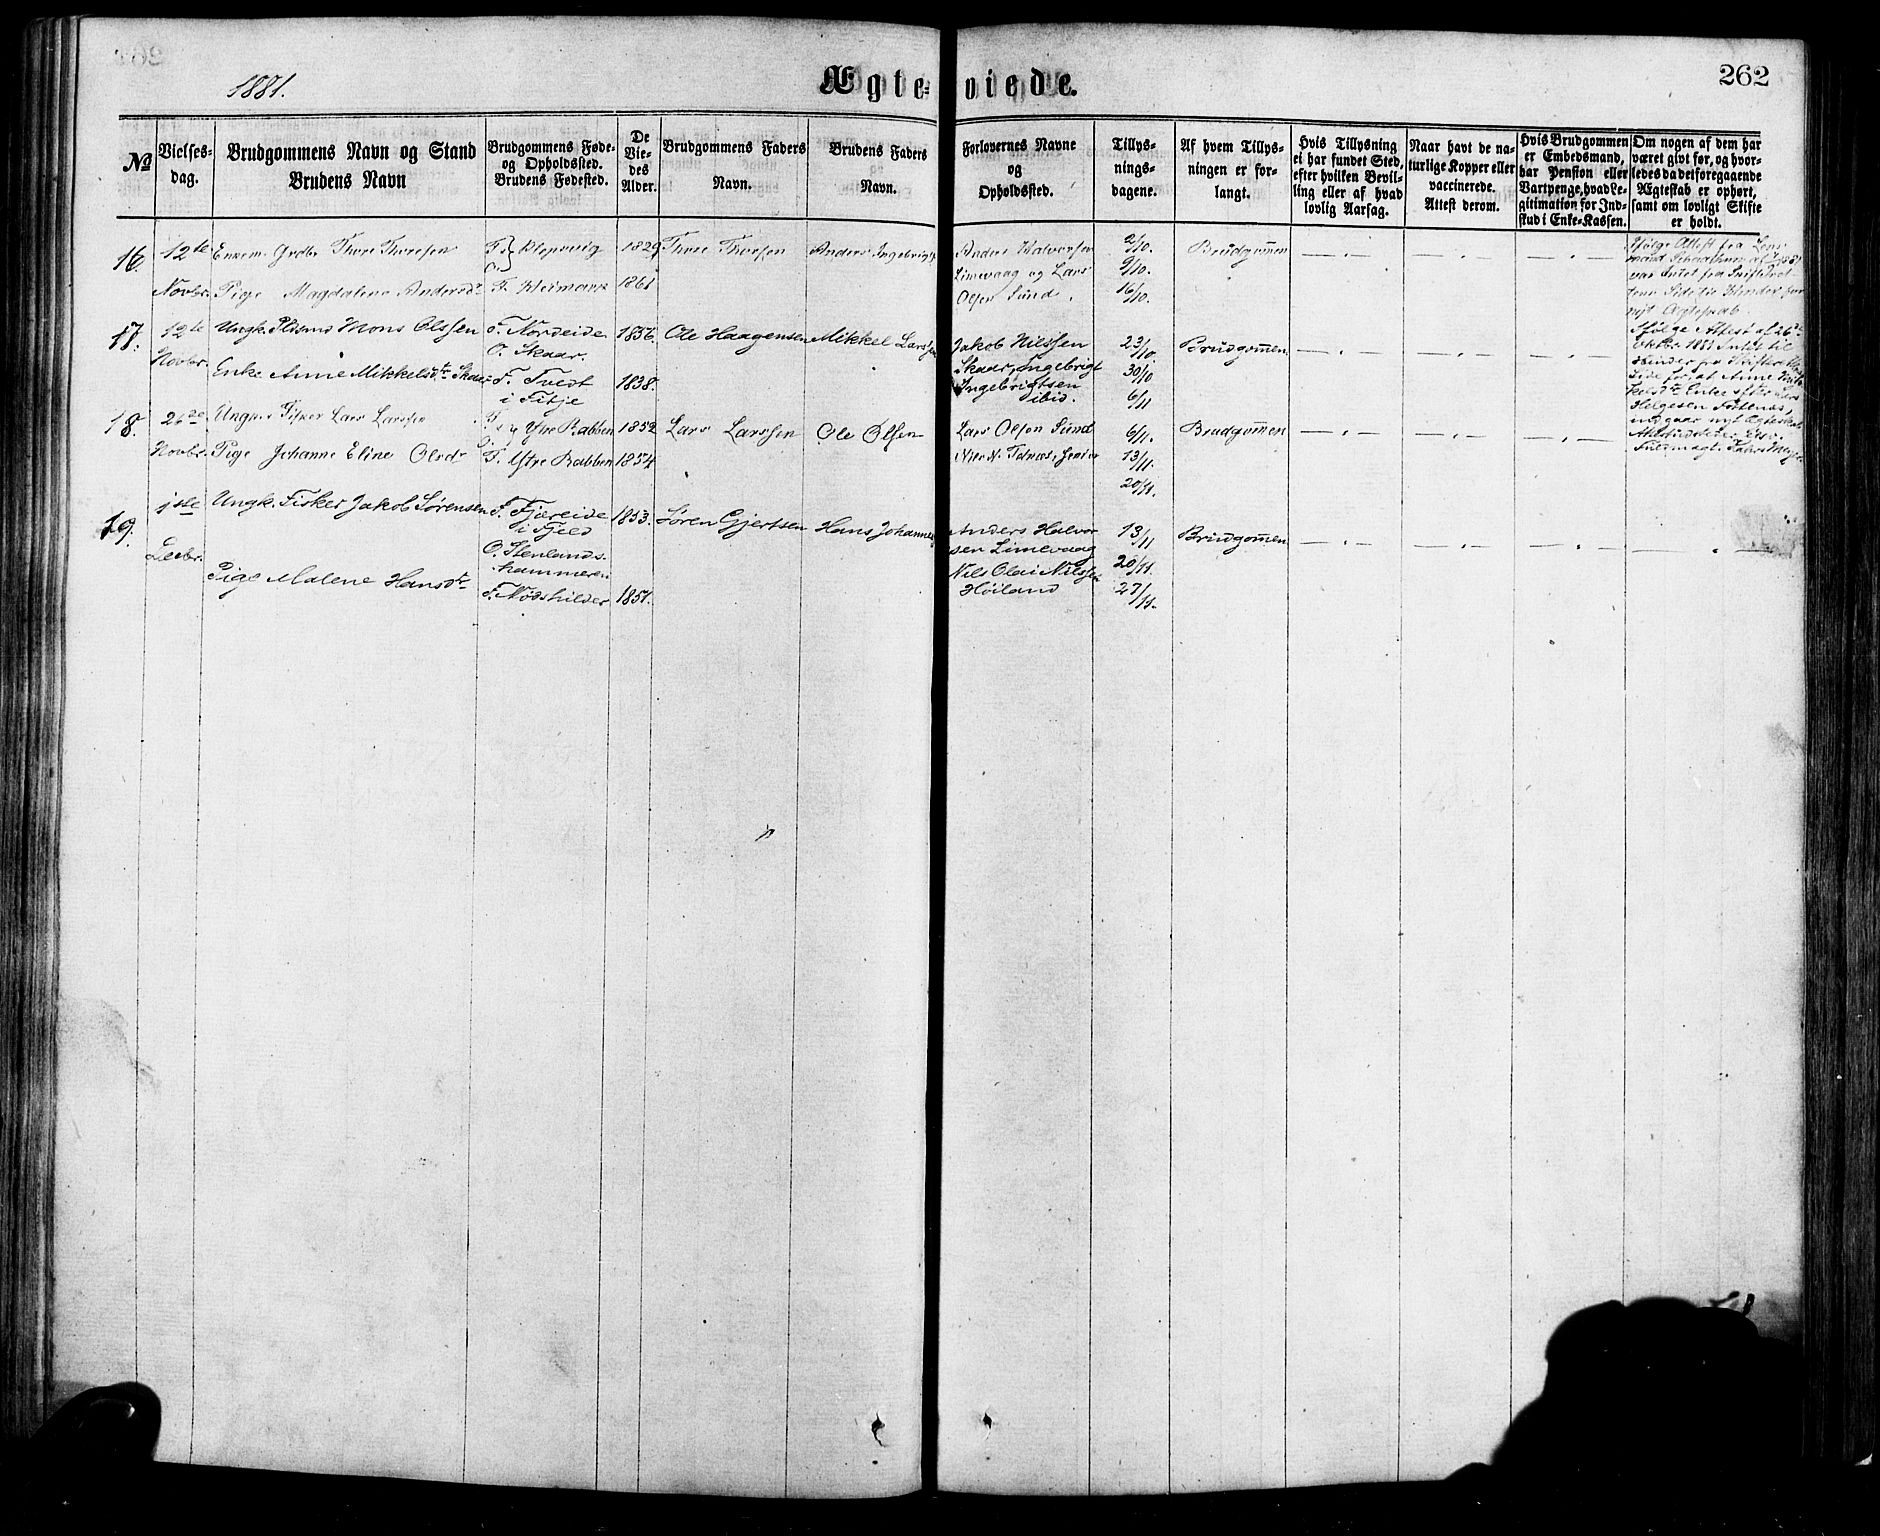 1881.
Ægte-viede.
262
№
Vielses-
dag.
Brudgommens Navn og Stand
Brudens Navn
Brudgommens Føde-
og Opholdssted.
Brudens Fødested.
De
Vie-
des
Alder.
Brudgommens Faders
Navn.
Brudens Faders
Navn.
Forlovernes Navne
og
Opholdssted.
Tillys-
nings-
dagene.
Af hvem Tillys-
ningen er for-
langt.
Hvis Tillysning
ei har fundet Sted,
efter hvilken Bevil-
ling eller af hvad
lovlig Aarsag.
Naar havt de na-
turlige Kopper eller
vaccinerede.
Attest derom.
Hvis Brudgommen
er Embedsmand,
har Pension eller
Vartpenge, hvad Le-
gitimation for Ind-
skud i Enke-Kassen.
Om nogen af dem har
været givt før, og hvor-
ledes da det foregaaende
Ægteskab er ophørt,
samt om lovligt Skifte
er holdt.
16.
12te
Novbr.
Enkem. Grdbr Thore Thoresen
Pige Magdalene Andersdr
F. O. Kleppevig
F.
1829
1861
Thore Thoresen
Anders Ingebrigts
Anders Halvorsen
Limevaag og Lars
Olsen Sund.
2/10.
9/10.
16/10.
Brudgommen
17.
12te
Novbr.
Ungk. Pldsmd Mons Olssen
Enke Anne Mikkelsdtr Skaar
F. Nordeide
O. Skaar.
F. Tveit
i Fitje
1856.
1838.
Ole Haagensen
Mikkel Larssen
Jakob Nilssen
Skaar, Ingebrigt
Ingebrigtsen
ibid.
23/10.
30/10
6/11
Brudgommen
18.
26de
Novbr.
Ungkr Fisker Lars Larssen
Pige Johanne Eline Olsdr
F. O. Ytre Rabben
F. Ytre Rabben
1852
1854
Lars Larssen
Ole Olsen
Lars Olsen Sund
Nils N. senior
6/11.
13/11.
20/11.
Brudgommen
19.
1ste
Decbr.
Ungk. Fisker Jakob Sørensen
Pige Malene Hansdtr
F. Fjæreide
i Fjeld
O. Stenlands-
hammeren
F. Nødshilder
1853.
1851.
Søren Gjertsen
Hans Johannes
Anders Halvor
sen Limevaag
Nils Olai Nilssen
Høiland
13/11
20/11.
27/11.
Brudgommen